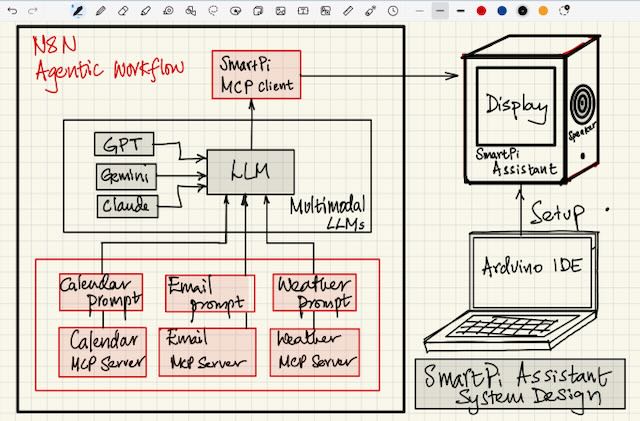 N8N
Agentic Workflow
SmartPi
MCP Client
GPT
Gemini
Claude
LLM
Multimodal
LLMs
Calendar
Prompt
Email
prompt
Weather
Prompt
Calendar
MCP Server
Email
MCP Server
Weather
MCP Server
Display
Speaker
SmartPi
Assistant
Setup
Arduino IDE
SmartPi Assistant
System Design